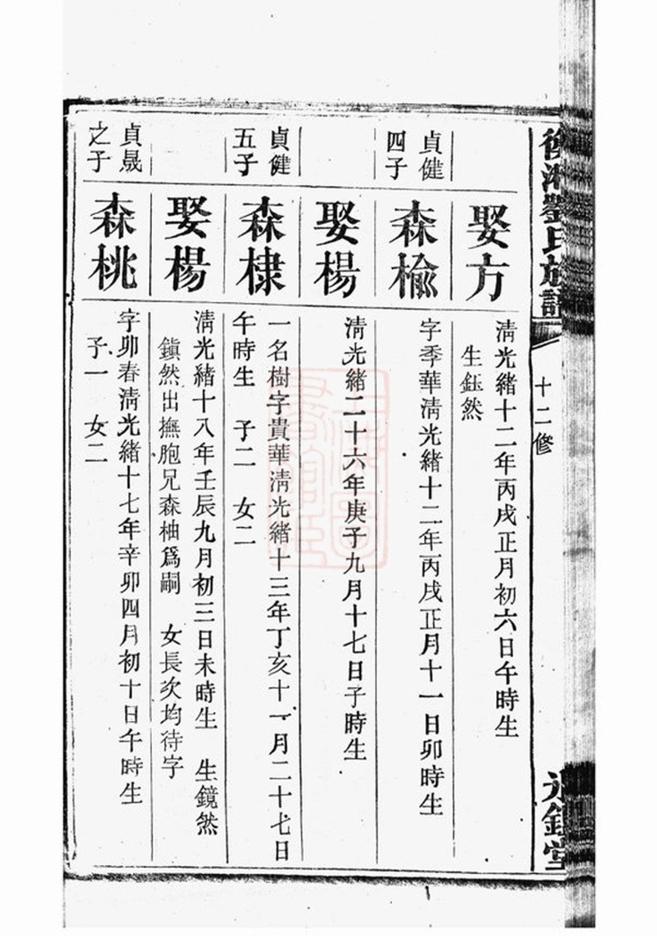 劉氏族譜
十二修
娶方
清光緒十二年丙戌正月初六日午時生
生鈺然
貞健
四子
森楡
字季華清光緒十二年丙戌正月十一日卯時生
娶楊
清光緒二十六年庚子九月十七日子時生
貞健
五子
森棣
一名樹字貴華清光緒十三年丁亥十一月二十七日
午時生 子二 女二
娶楊
清光緒十八年壬辰九月初三日未時生 生鏡然
鎭然出撫胞兄森柚爲嗣 女長次均待字
貞晟
之子
森桃
字卯春清光緒十七年辛卯四月初十日午時生
子一 女二